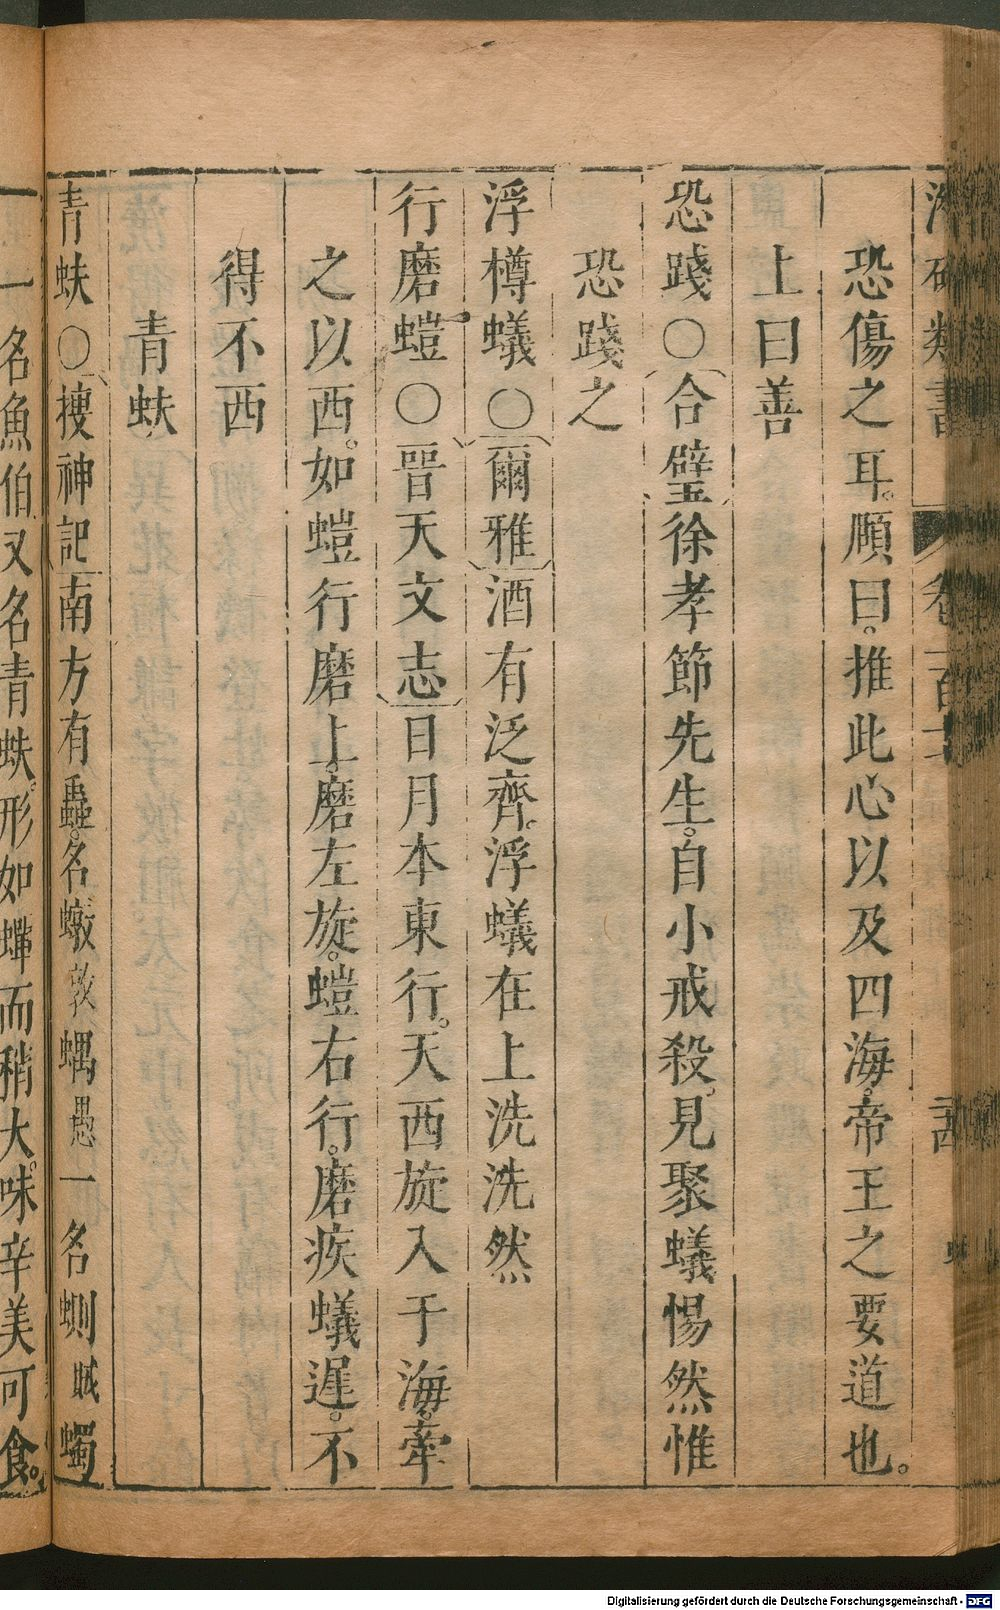 類書
卷一百七十
恐傷之耳。頤曰。推此心以及四海。帝王之要道也。
上曰善
恐踐○合璧徐孝節先生。自小戒殺。見聚蟻惕然惟
恐踐之
浮樽蟻○爾雅酒有泛齊。浮蟻在上洗洗然
行磨螘○晉天文志日月本東行。天西旋入于海。牽
之以西。如螘行磨上。磨左旋。螘右行。磨疾蟻遲。不
得不西
青蚨
青蚨○摉神記南方有蟲。名𧑒敦蝺愚一名蝲蠋
一名魚伯又名青蚨。形如蟬而稍大。味辛美可食。
Digitalisierung gefördert durch die Deutsche Forschungsgemeinschaft - DFG